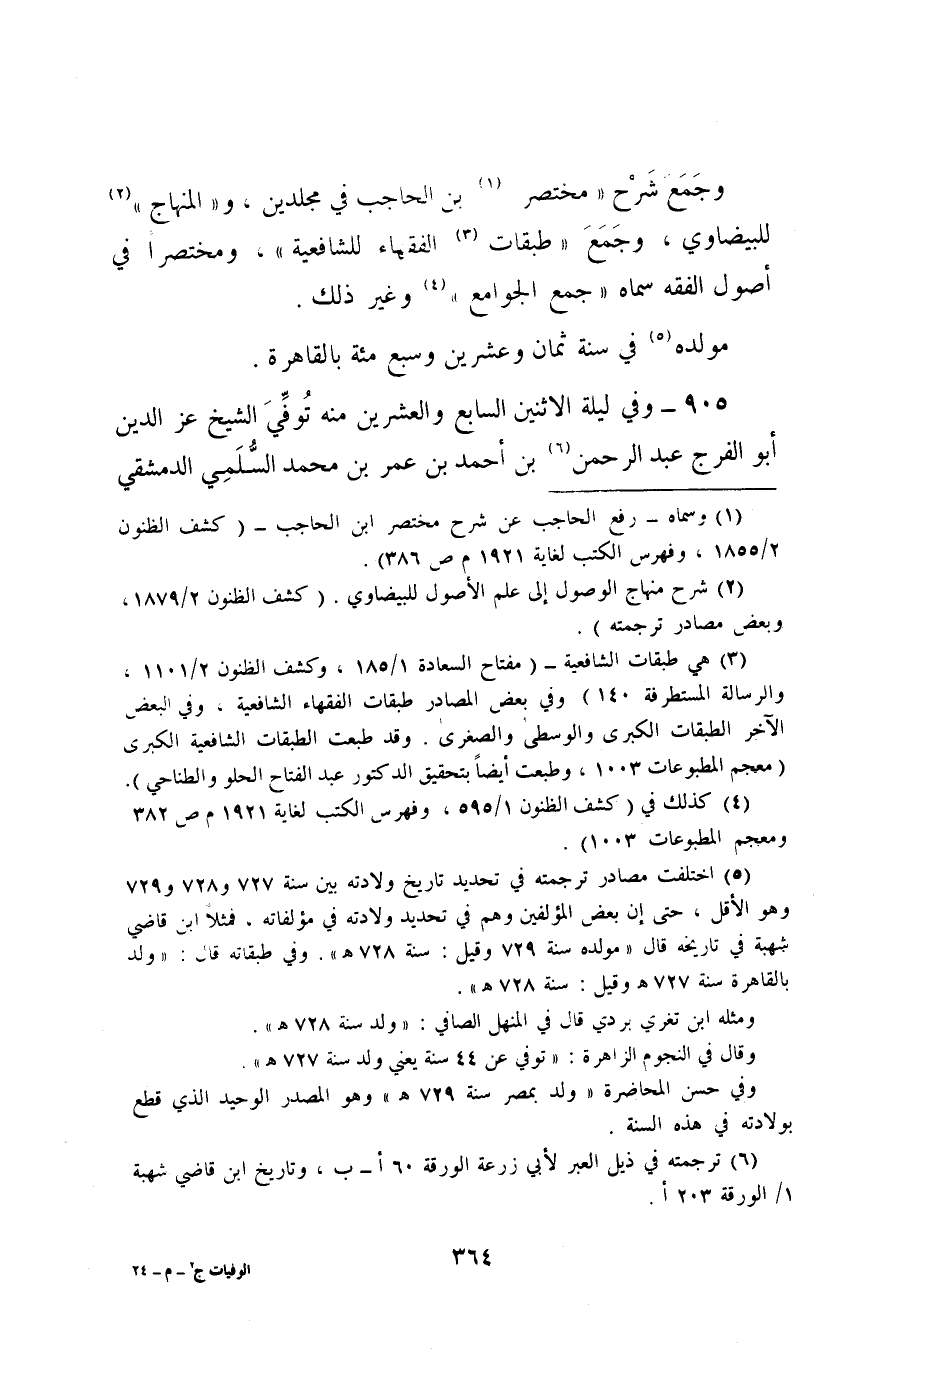 وجَمَعَ شَرْح « مختصر (١) بن الحاجب في مجلدين ، و« المنهاج »(٢)
للبيضاوي ، وجَمَعَ « طبقات (٣) الفقهاء للشافعية » ، ومختصراً في
أصول الفقه سماه « جمع الجوامع »(٤) وغير ذلك .
مولده(٥) في سنة ثمان وعشرين وسبع مئة بالقاهرة .
٩٠٥ ــ وفي ليلة الاثنين السابع والعشرين منه تُوفِّيَ الشيخ عز الدين
أبو الفرج عبد الرحمن(٦) بن أحمد بن عمر بن محمد السُّلَمِي الدمشقي
(١) وسماه ــ رفع الحاجب عن شرح مختصر ابن الحاجب ــ ( كشف الظنون
١٨٥٥/٢ ، وفهرس الكتب لغاية ١٩٢١ م ص ٣٨٦) .
(٢) شرح منهاج الوصول إلى علم الأصول للبيضاوي . ( كشف الظنون ١٨٧٩/٢ ،
وبعض مصادر ترجمته ) .
(٣) هي طبقات الشافعية ــ ( مفتاح السعادة ١٨٥/١ ، وكشف الظنون ١١٠١/٢ ،
والرسالة المستطرفة ١٤٠ ) وفي بعض المصادر طبقات الفقهاء الشافعية ، وفي البعض
الآخر الطبقات الكبرى والوسطى والصغرى . وقد طبعت الطبقات الشافعية الكبرى
( معجم المطبوعات ١٠٠٣ ، وطبعت أيضاً بتحقيق الدكتور عبد الفتاح الحلو والطناحي ).
(٤) كذلك في ( كشف الظنون ٥٩٥/١ ، وفهرس الكتب لغاية ١٩٢١ م ص ٣٨٢
ومعجم المطبوعات ١٠٠٣) .
(٥) اختلفت مصادر ترجمته في تحديد تاريخ ولادته بين سنة ٧٢٧ و٧٢٨ و٧٢٩
وهو الأقل ، حتى إن بعض المؤلفين وهم في تحديد ولادته في مؤلفاته . فمثلاً ابن قاضي
شهبة في تاريخه قال « مولده سنة ٧٢٩ وقيل : سنة ٧٢٨ ه» . وفي طبقاته قال : « ولد
بالقاهرة سنة ٧٢٧ ه وقيل : سنة ٧٢٨ ه» .
ومثله ابن تغري بردي قال في المنهل الصافي : « ولد سنة ٧٢٨ ه» .
وقال في النجوم الزاهرة : « توفي عن ٤٤ سنة يعني ولد سنة ٧٢٧ ه» .
وفي حسن المحاضرة « ولد بمصر سنة ٧٢٩ ه » وهو المصدر الوحيد الذي قطع
بولادته في هذه السنة .
(٦) ترجمته في ذيل العبر لأبي زرعة الورقة ٦٠ أ ــ ب ، وتاريخ ابن قاضي شهبة
١/ الورقة ٢٠٣ أ .
٣٦٤
الوفيات ج٢ ــ م ــ ٢٤